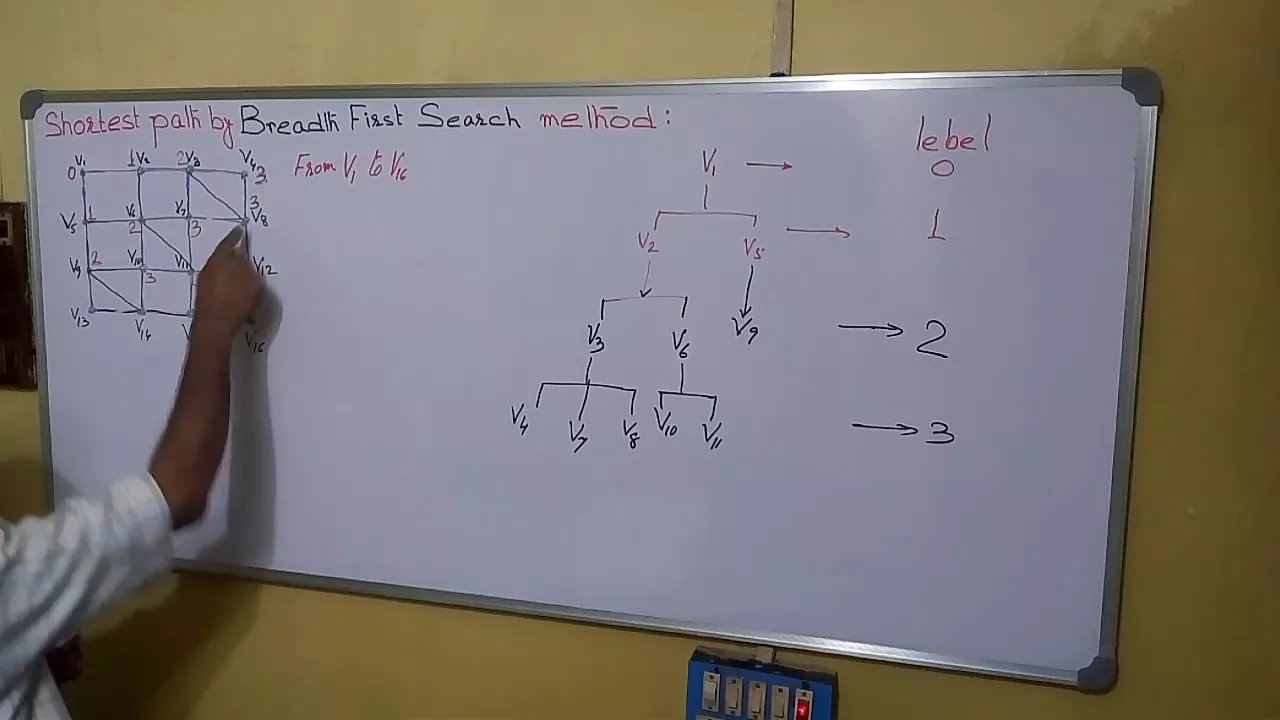 Shortest path by Breadth First Search method :
From V1 to V16
0 V1 1 V2 2 V3 V4 3
V5 1 V6 2 V7 3 3 V8
V9 2 V10 3 V11 V12
V13 V14 V V16
lebel
V1 → 0
V2 V5 → 1
V3 V6 V9 → 2
V4 V7 V8 V10 V11 → 3